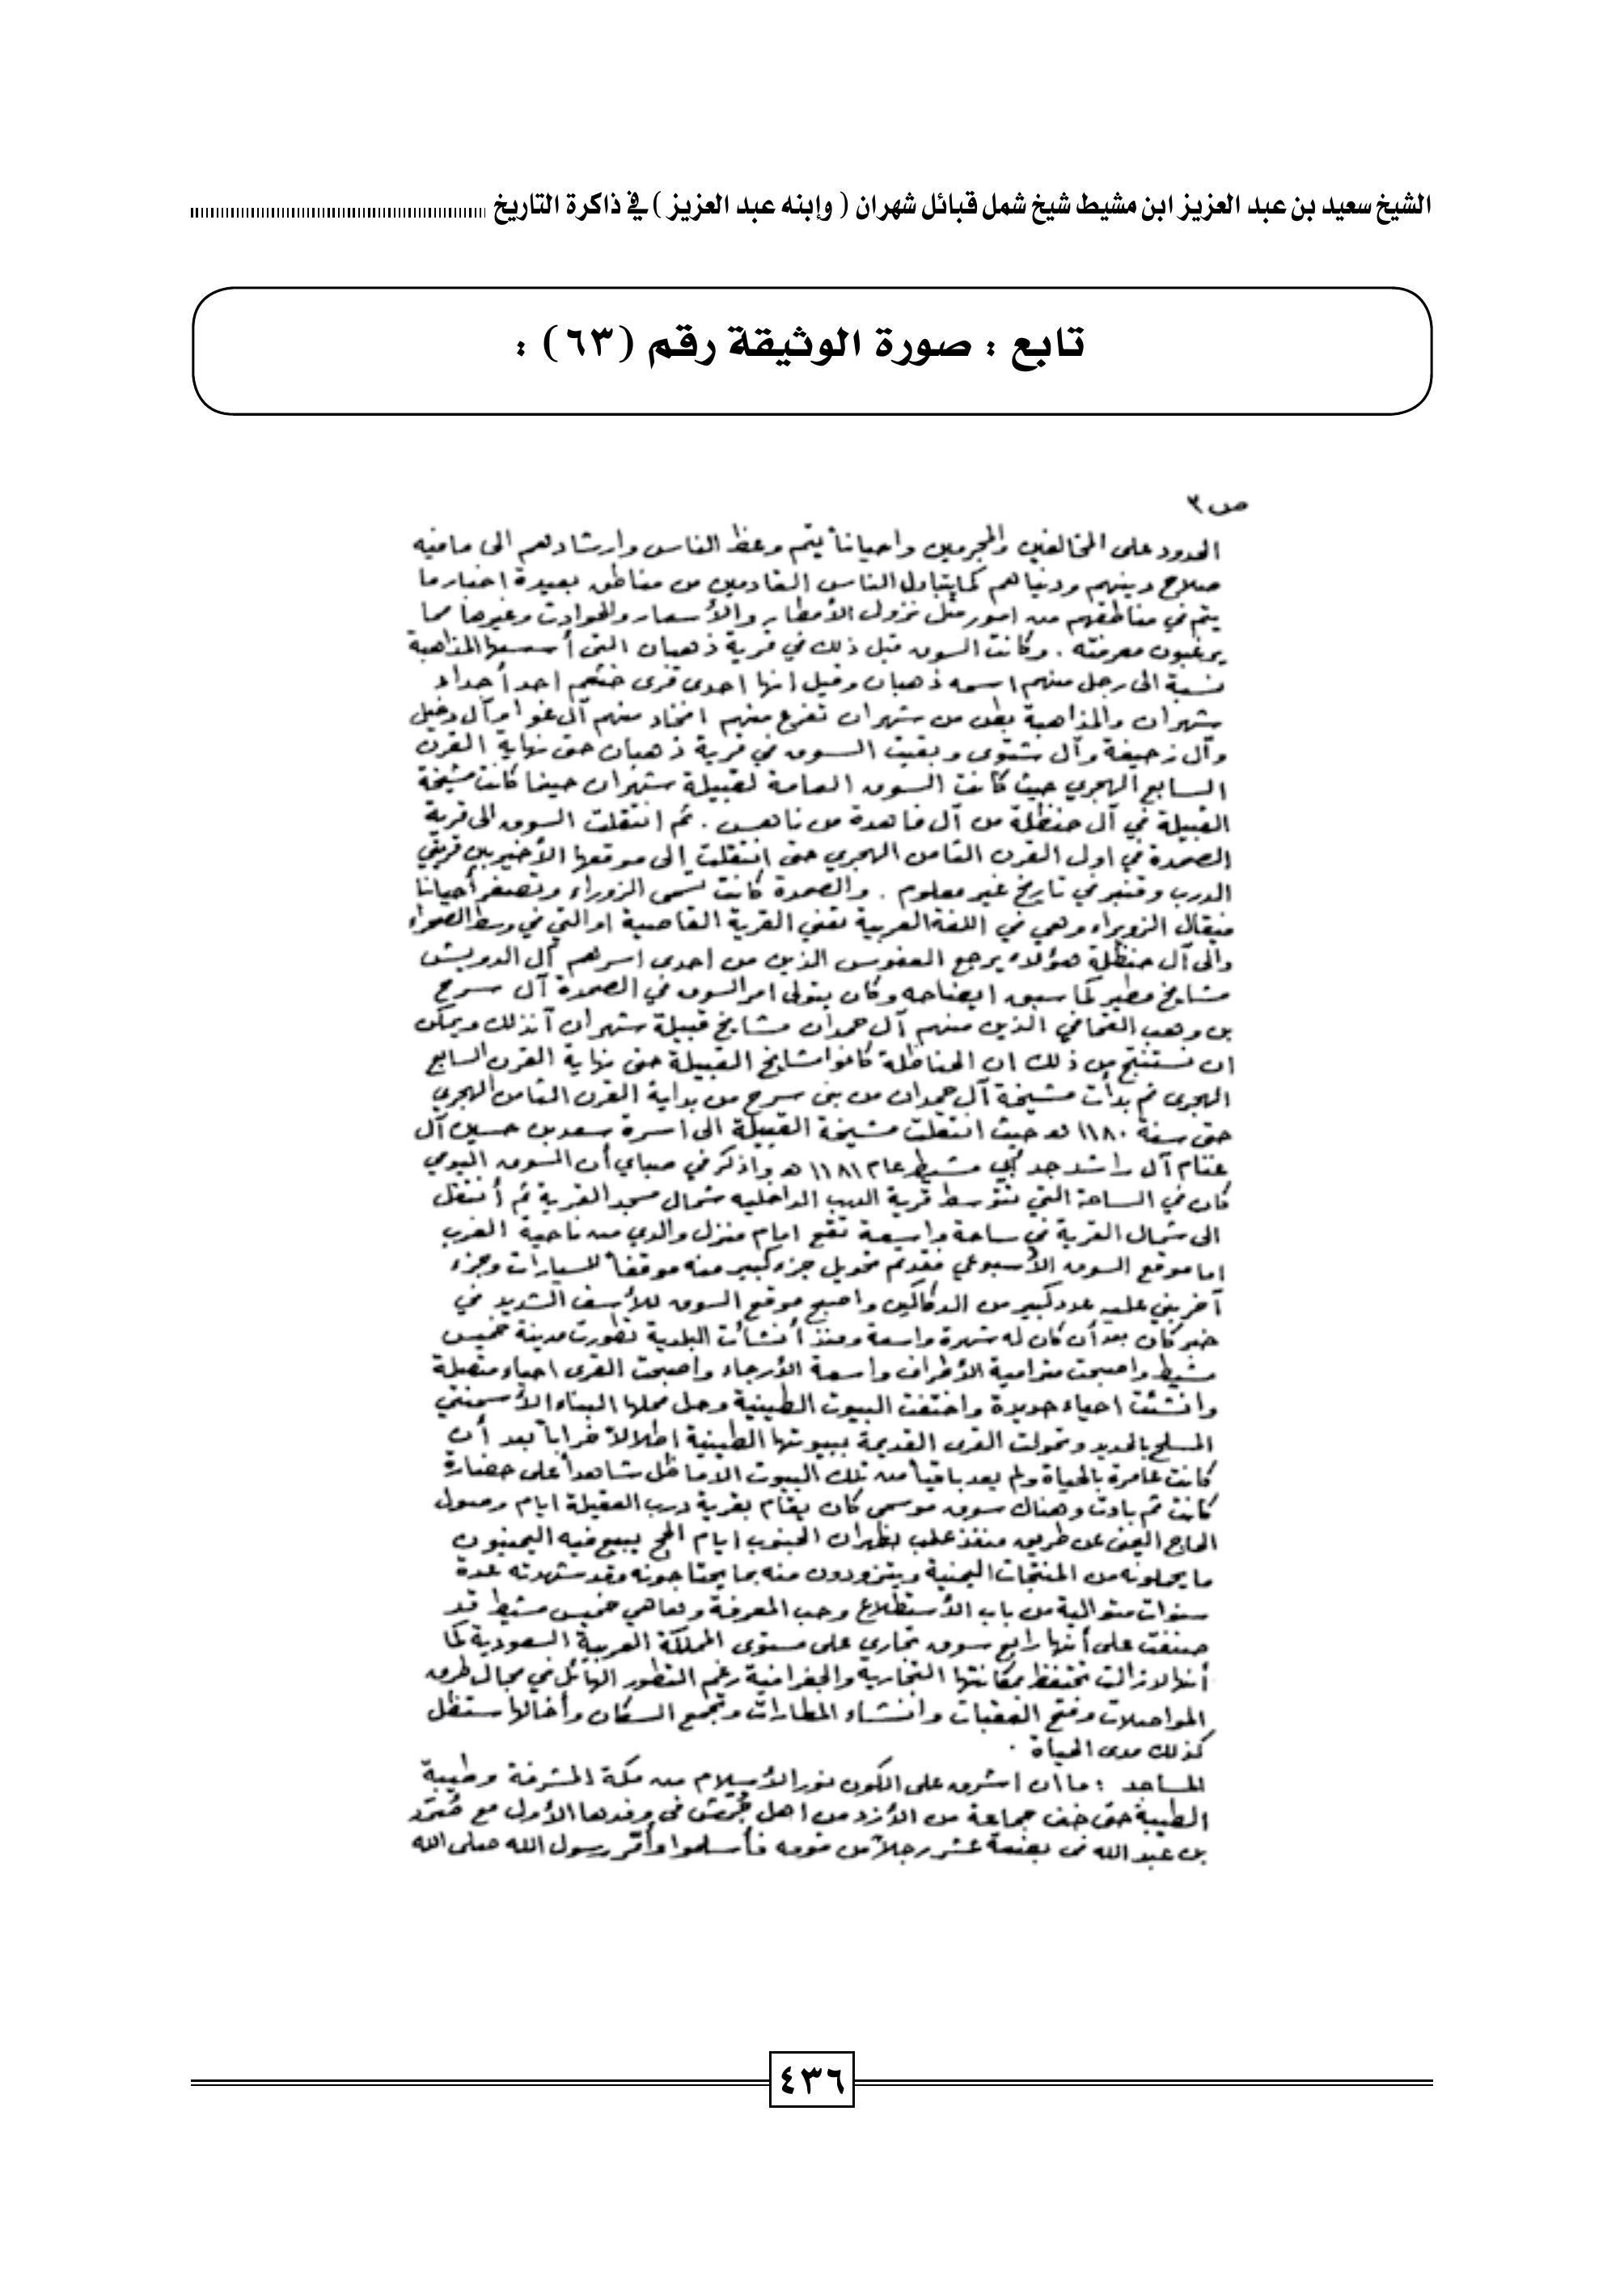 الشيخ سعيد بن عبد العزيز ابن مشيط شيخ شمل قبائل شهران ( وإبنه عبد العزيز ) في ذاكرة التاريخ
تابع : صورة الوثيقة رقم (٦٣) :
ص ٣
الحدود على المخالفين والمجرمين واحياناً يتم وعظ الناس وارشادهم الى مافيه
صلاح دينهم ودنياهم كما يتبادل الناس القادمين من مناطق بعيدة اخبار ما
يتم في مناطقهم من امور مثل نزول الأمطار والأسعار والحوادث وغيرها مما
يرغبون معرفته . وكانت السوق قبل ذلك في قرية ذهبان التى أسسها المذاهبة
نسبة الى رجل منهم اسمه ذهبان وقيل انها احدى قرى خثعم احد أجداد
شهران والمذاهبة بطن من شهران تفرع منهم افخاذ منهم آل غوا وآل دخيل
وآل زحيفة وآل شتوى وبقيت السوق في قرية ذهبان حتى نهاية القرن
السابع الهجري حيث كانت السوق العامة لقبيلة شهران حينما كانت مشيخة
القبيلة في آل حنظلة من آل فاهدة من ناهس . ثم انتقلت السوق الى قرية
الصمدة في اول القرن الثامن الهجري حتى انتقلت إلى موقعها الأخير بين قريتي
الدرب وقنبر في تاريخ غير معلوم . والصمدة كانت تسمى الزوراء وتصغر أحيانا
فيقال الزويراء وهي في اللغة العربية تعني القرية القاصية او التي في وسط الصحراء
والى آل حنظلة هؤلاء يرجع العفوس الذين من احدى اسرهم آل الدويش
مشايخ مطير كما سبق ايضاحه وكان يتولى امر السوق في الصمدة آل سرح
بن وهب القحافي الذين منهم آل حمدان مشايخ قبيلة شهران آنذلك ويمكن
ان نستنتج من ذلك ان الحناظلة كانوا مشايخ القبيلة حتى نهاية القرن السابع
الهجرى ثم بدأت مشيخة آل حمدان من بنى سرح من بداية القرن الثامن الهجري
حتى سنة ١١٨٠ هـ حيث انتقلت مشيخة القبيلة الى اسرة سعد بن حسين آل
غنام آل راشد جد أبي مشيط عام ١١٨١ هـ واذكر في صباي أن السوق اليومي
كان في الساحة التي تتوسط قرية الدرب الداخليه شمال مسجد القرية ثم أنتقل
الى شمال القرية في ساحة واسعة تقع امام منزل والدي من ناحية الغرب
اما موقع السوق الأسبوعي فقد تم تحويل جزء كبير منه موقفاً للسيارات وجزء
آخر بني عليه عدد كبير من الدكاكين واصبح موقع السوق للأسف الشديد في
خبر كان بعد أن كان له شهرة واسعة ومنذ أنشأت البلدية تطورت مدينة خميس
مشيط واصبحت مترامية الأطراف واسعة الأرجاء واصبحت القرى احياء متصلة
وانشئت احياء جديدة واختفت البيوت الطينية وحل محلها البناء الأسمنتي
المسلح بالحديد وتحولت القرى القديمة ببيوتها الطينية اطلالاً خراباً بعد أن
كانت عامرة بالحياة ولم يعد باقياً من تلك البيوت الا ما ظل شاهداً على حضارة
كانت ثم بادت وهناك سوق موسمى كان يقام بقرية درب العقيلة ايام وصول
الحاج اليمنى عن طريق منفذ علب بظهران الجنوب ايام الحج يبيع فيه اليمنيون
ما يحملونه من المنتجات اليمنية ويتزودون منه بما يحتاجونه وقد شهدته عدة
سنوات متوالية من باب الأستطلاع وحب المعرفة وها هي خميس مشيط قد
صنفت على أنها رابع سوق تجاري على مستوى المملكة العربية السعودية كما
أنها لازالت تحتفظ بمكانتها التجارية والجغرافية رغم التطور الهائل في مجال طرق
المواصلات وفتح العقبات وانشاء المطارات وتجمع السكان وأخالها ستظل
كذلك مدى الحياة .
المساجد : ما ان اشرق على الكون نور الأسلام من مكة المشرفة وطيبة
الطيبة حتى خف جماعة من الأزد من اهل جُرَش فى وفدها الأول مع صُرَد
بن عبد الله فى بضعة عشر رجلاً من قومه فأسلموا وأمّر رسول الله صلى الله
٤٣٦